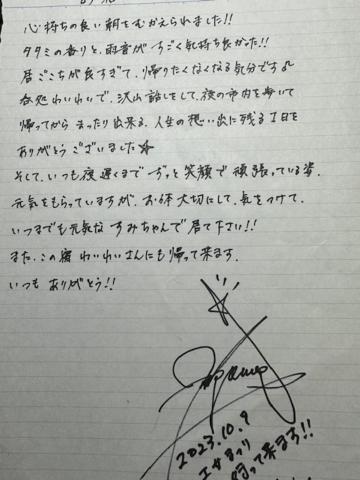 心持ちの良い朝をむかえられました!!
タタミの香りと、雨音がすごく気持ち良かった!!
居ごこちが良すぎて、帰りたくなくなる気分です♪
呑処わいわいで、沢山話しをして、夜の市内を歩いて
帰ってからまったり出来る、人生の想い出に残る1日を
ありがとうございました☆
そして、いつも夜遅くまでずっと笑顔で頑張っている姿、
元気をもらっていますが、お体大切にして、気をつけて、
いつまでも元気なすみちゃんで居て下さい!!
また、この宿わいわいさんにも帰って来ます。
いつもありがとう!!
2023.10.9
エサまつり
帰って来ます!!